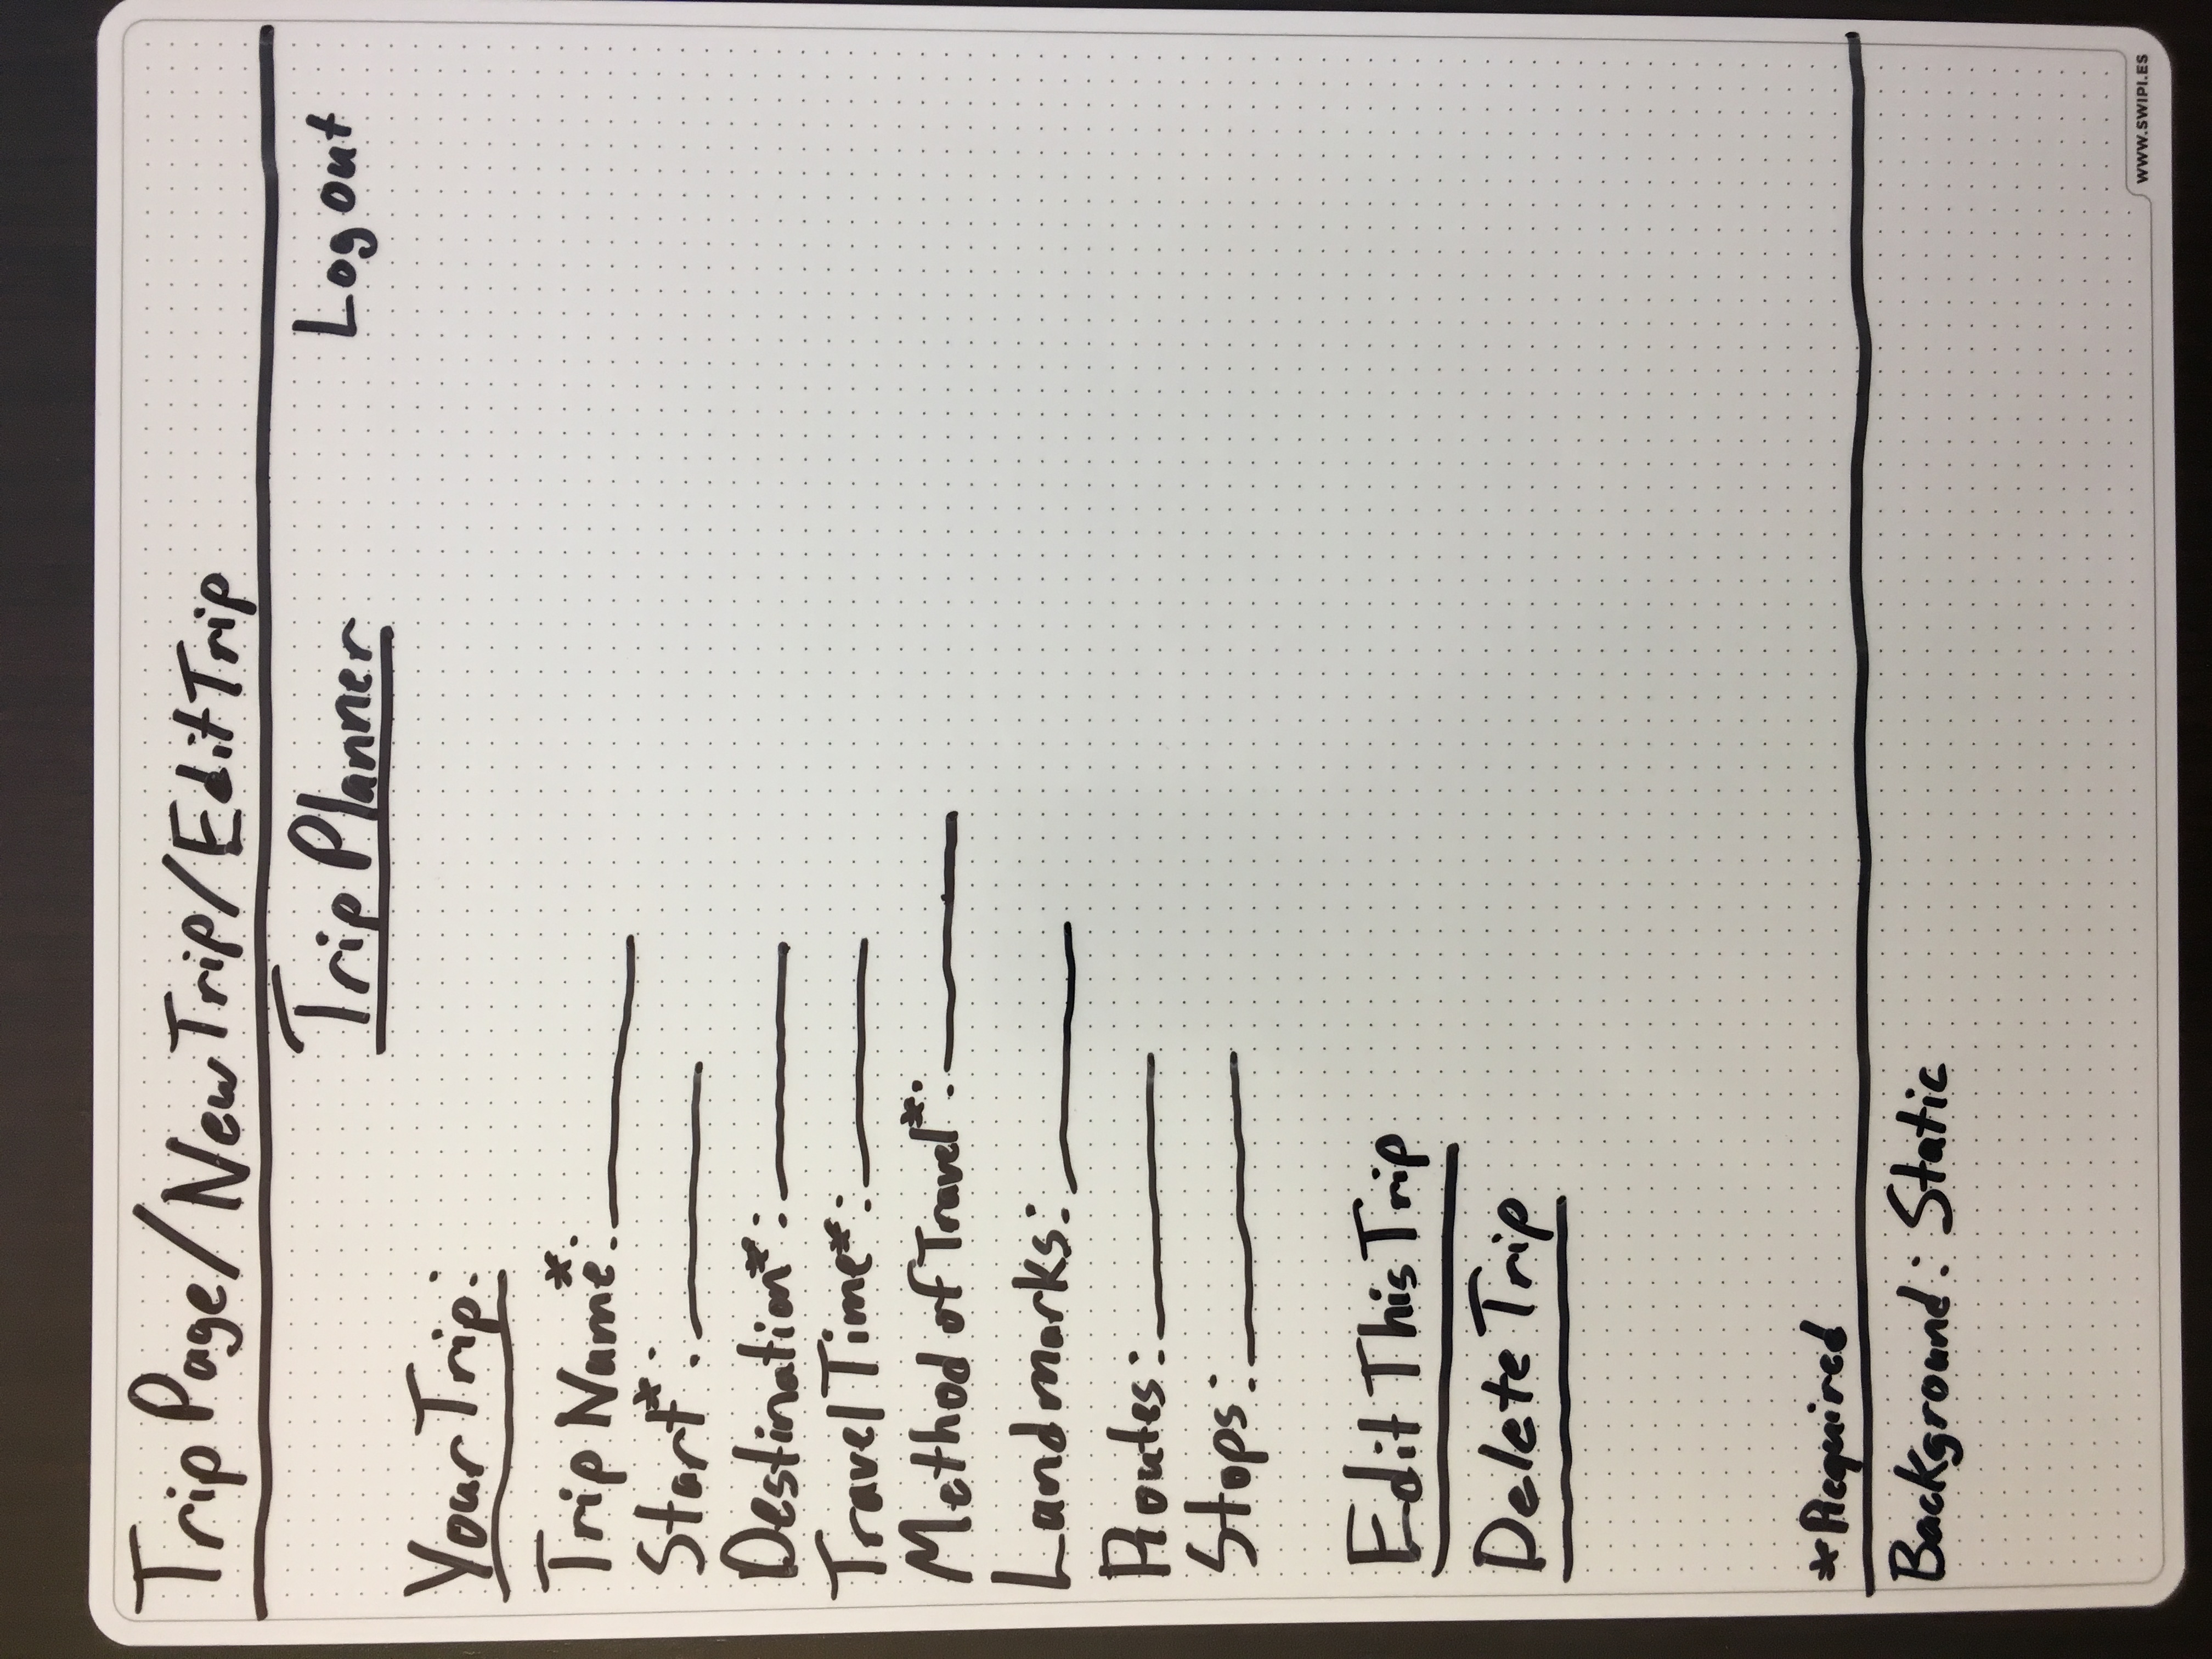 Trip Page/New Trip/Edit Trip
Trip Planner
Logout
Your Trip:
Trip Name*:
Start*:
Destination*:
Travel Time*:
Method of Travel*:
Landmarks:
Routes:
Stops:
Edit This Trip
Delete Trip
*Required
Background: Static
WWW.SWIPI.ES